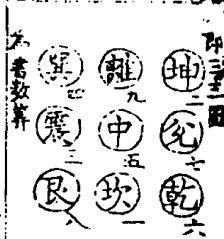 坤二
兌七
乾六
離九
中五
坎一
巽四
震三
艮八
為書数算